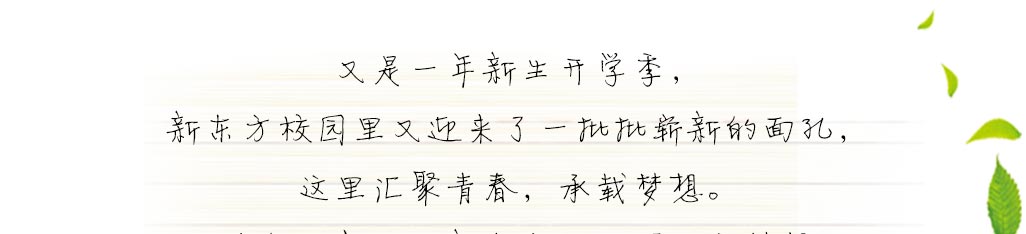 又是一年新生开学季，
新东方校园里又迎来了一批批崭新的面孔，
这里汇聚青春，承载梦想。